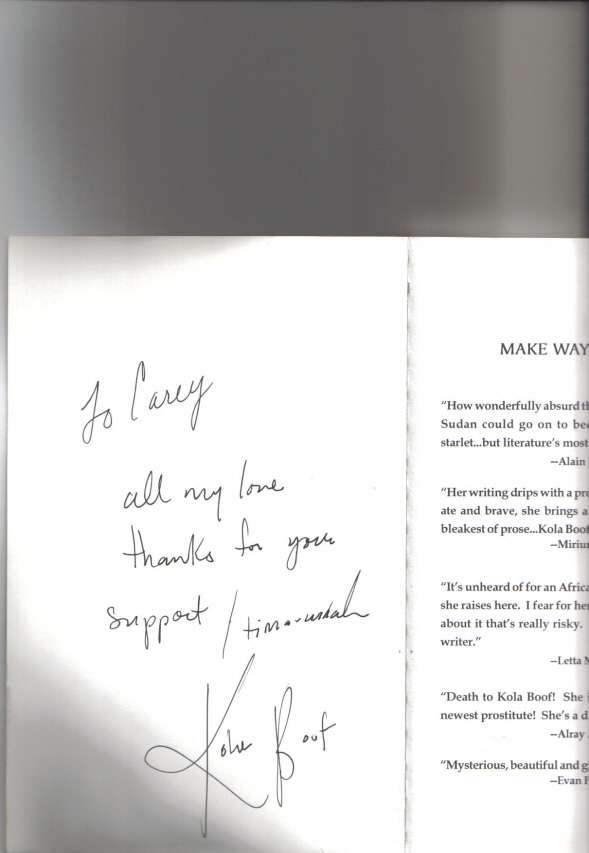 To Carey
all my love
thanks for your
support / tima-usrah
Kola Boof
MAKE WAY
“How wonderfully absurd th
Sudan could go on to bec
starlet...but literature's most
--Alain
“Her writing drips with a pro
ate and brave, she brings a
bleakest of prose...Kola Boof
--Miriu
“It's unheard of for an Africa
she raises here. I fear for her
about it that's really risky.
writer.”
--Letta
“Death to Kola Boof! She
newest prostitute! She's a d
--Alray
“Mysterious, beautiful and g
--Evan